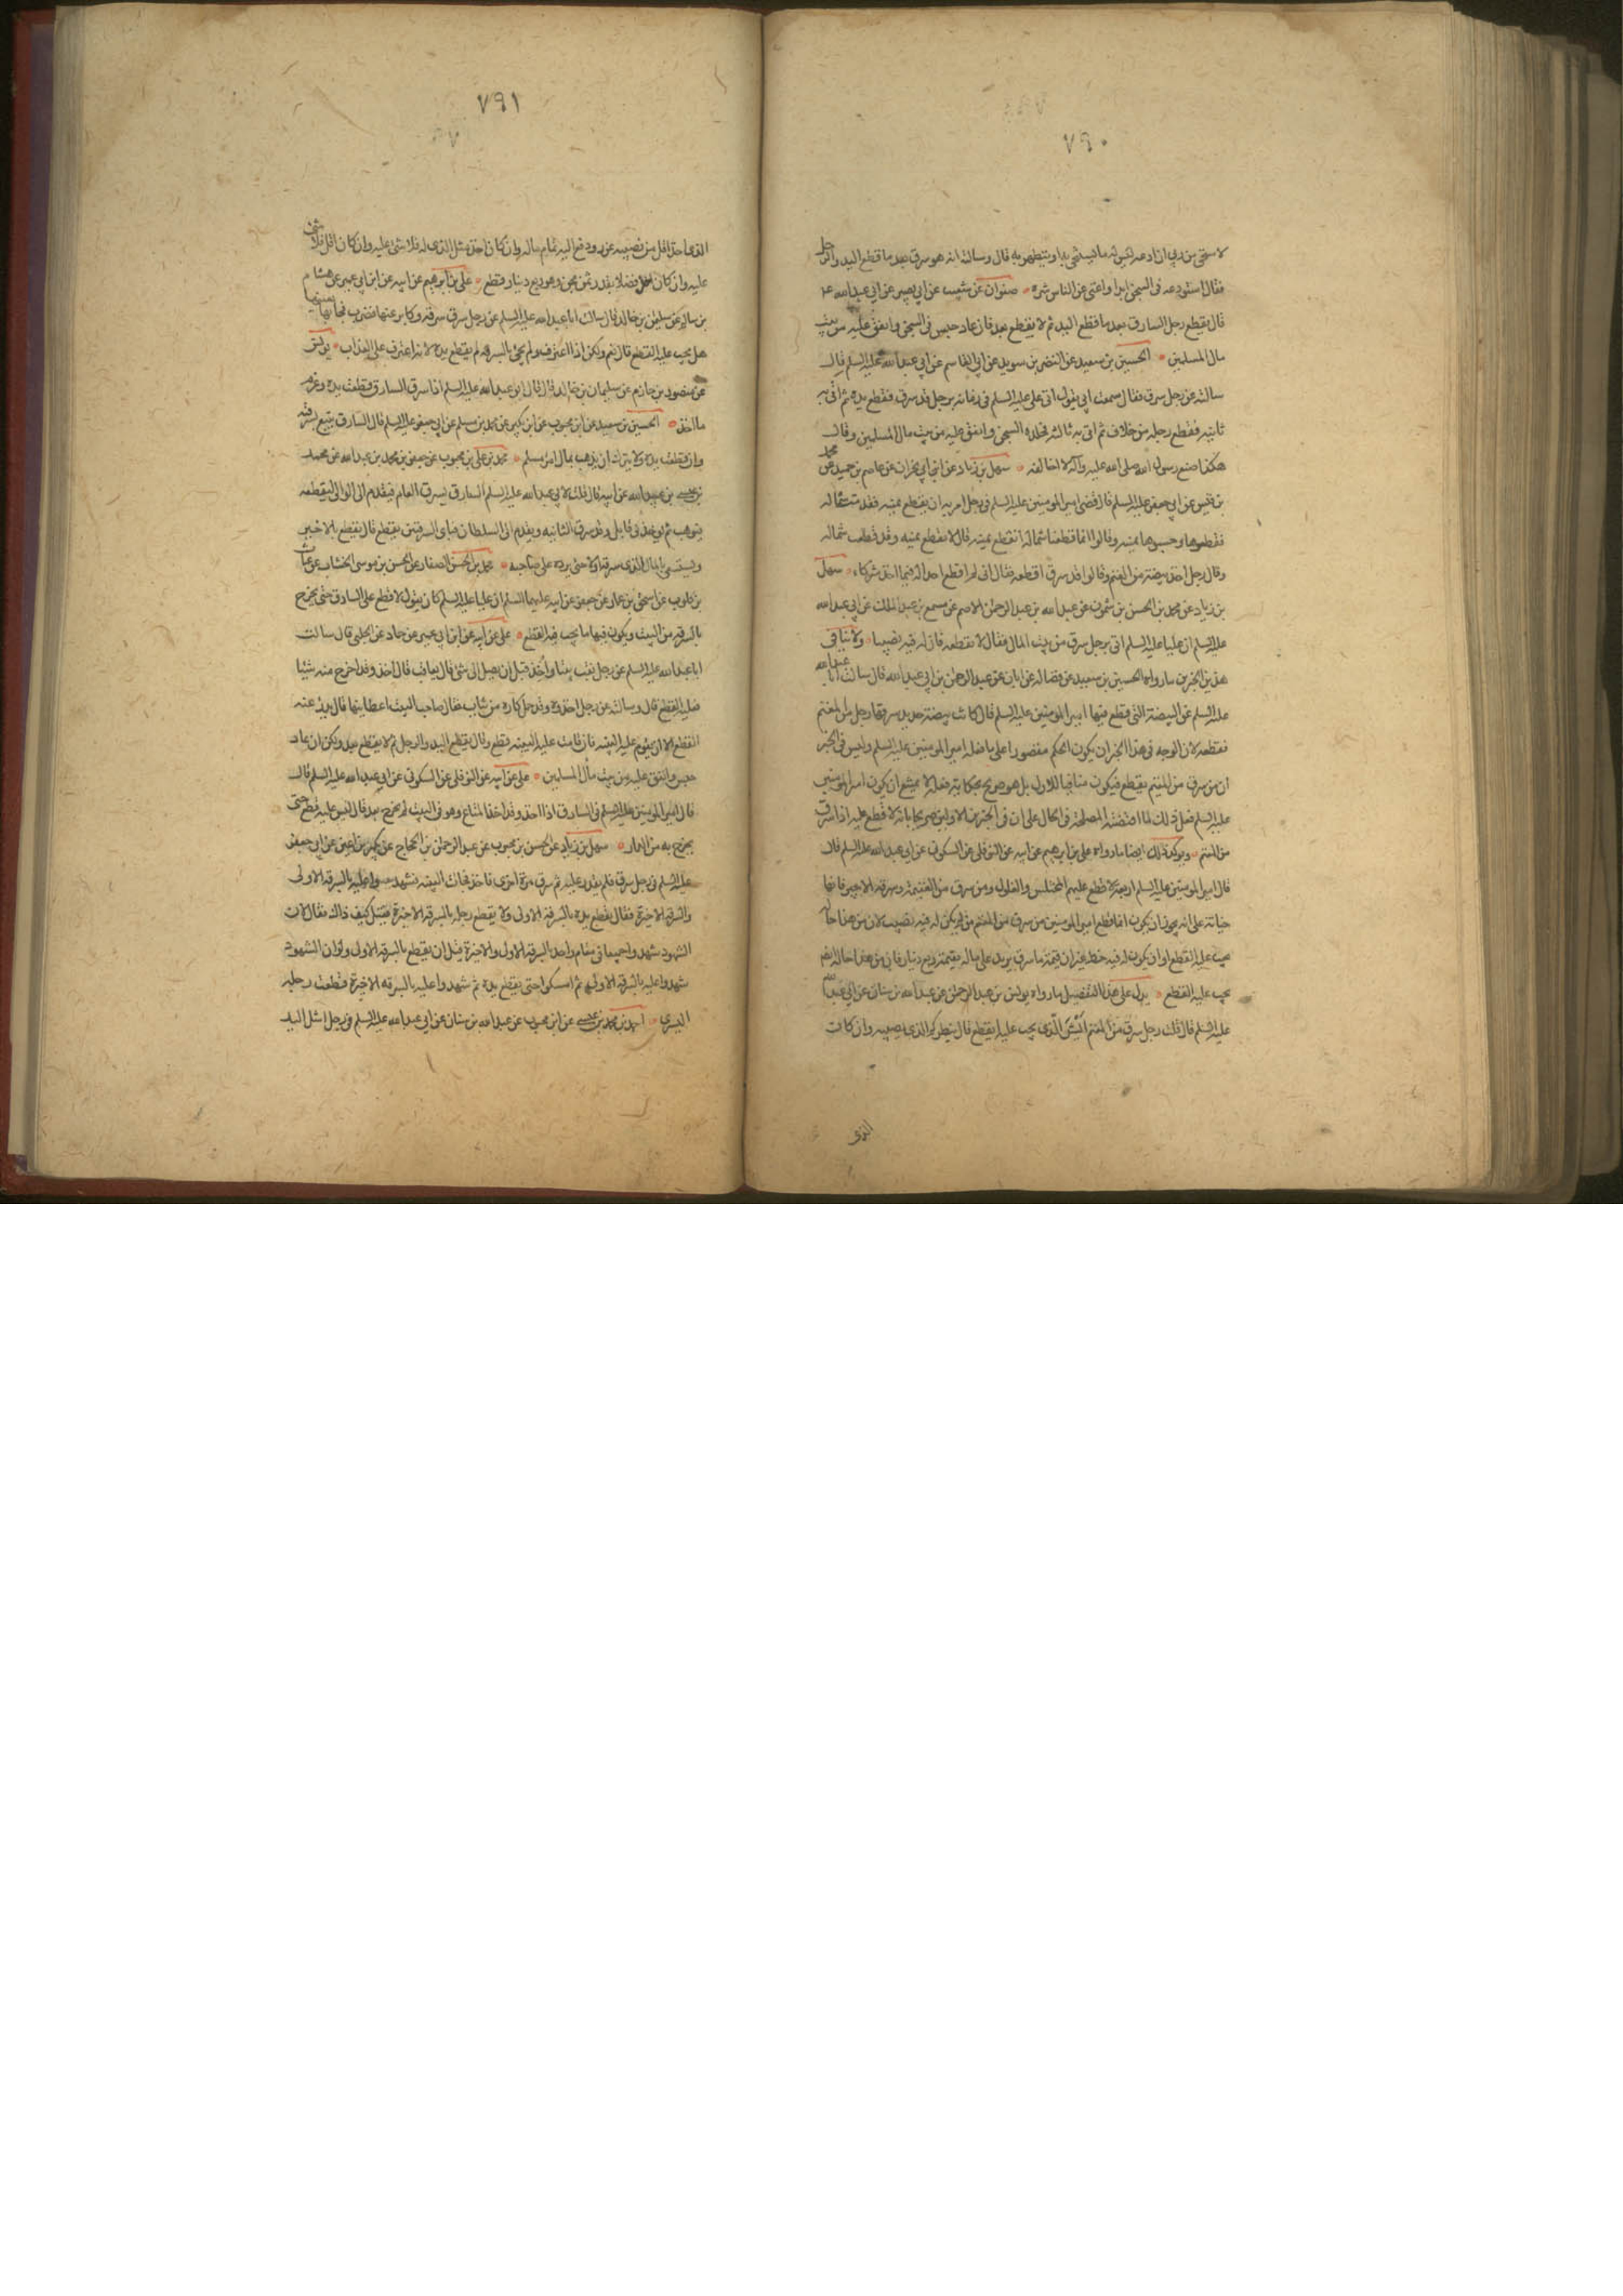 ٧٩٠
لاستحيي من ربي ان ادعه ليس له ما يستنجي به او يتطهر به قال وسالته ان هو سرق بعد ما قطع اليد والرجل
فقال استودعه في السجن ابدا واغني عن الناس شره صفوان عن شعيب عن ابي بصير عن ابي عبد الله ع
قال يقطع رجل السارق بعد ما قطع اليد ثم لا يقطع بعد فان عاد حبس في السجن وانفق عليه من بيت
مال المسلمين الحسين بن سعيد عن النضر بن سويد عن القاسم عن ابي عبد الله عليه السلم قال
سالته عن رجل سرق فقال سمعت ابي يقول اتى علي عليه السلم في زمانه برجل قد سرق فقطع يده ثم اتي به
ثانيه فقطع رجله من خلاف ثم اتى به ثالثه فخلده السجن وانفق عليه من بيت مال المسلمين وقال
هكذا صنع رسول الله صلى الله عليه وآله لا اخالفه سهل بن زياد عن ابن ابي نجران عن عاصم بن حميد عن محمد
بن قيس عن ابي جعفر عليه السلم قال قضى امير المومنين عليه السلم في رجل امر به ان يقطع يمينه فقدمت شماله
فقطعوها وحسبوها يمينه وقالوا انما قطعنا شماله انقطع يمينه قال لا نقطع يمينه وقد قطعت شماله
وقال رجل اخذ بيضة من المغنم وقالوا قد سرق اقطعه فقال اني لم اقطع احدا له فيما اخذ شركاء سهل
بن زياد عن محمد بن الحسن بن شمون عن عبد الله بن عبد الرحمن الاصم عن مسمع بن عبد الملك عن ابي عبد الله
عليه السلم ان عليا عليه السلم اتى برجل سرق من بيت المال فقال لا نقطعه فان له فيه نصيبا ولا ينافي
هذين الخبرين ما رواه الحسين بن سعيد عن فضاله عن ابان عن عبد الرحمن بن ابي عبد الله قال سالت ابا عبد الله
عليه السلم عن البيضة التي قطع فيها امير المومنين عليه السلم قال كانت بيضة حديد سرقها رجل من المغنم
فقطعه لان الوجه في هذا الخبر ان يكون الحكم مقصورا على ما فعله امير المومنين عليه السلم وليس في الخبر
ان من سرق من المغنم يقطع فيكون منافيا للاول بل هو صريح بحكاية فعله لا يمتنع ان يكون امير المومنين
عليه السلم فعل ذلك لما اقتضته المصلحة في الحال على ان في الخبرين الاولين صريحا بانه لا قطع عليه اذا سرق
من المغنم ويوكد ذلك ايضا ما رواه علي بن ابرهيم عن ابيه عن النوفلي عن السكوني عن ابي عبد الله عليه السلم قال
قال امير المومنين عليه السلم اربعة لا قطع عليهم المختلس والغلول ومن سرق من الغنيمة وسرقة الاجير فانها
خيانة على انه يجوز ان يكون انما قطع امير المومنين من سرق من المغنم من لم يكن له فيه نصيب لان من هذا حاله
يجب عليه القطع او ان يكون له فيه حظ غير ان قيمة ما سرق يزيد على ماله بقيمة ربع دينار فان من هذا حاله ايضا
يجب عليه القطع يدل على هذا التفصيل ما رواه يونس بن عبد الرحمن عن عبد الله بن سنان عن ابي عبد الله
عليه السلم قال قلت رجل سرق من المغنم الشي الذي يجب عليه القطع قال ينظر كم الذي يصيبه وان كانت
الذي
٧٩١
الذي اخذ اقل من نصيبه عزر ودفع اليه تمام ماله وان كان اخذ مثل الذي له فلا شئ عليه وان كان اقل فلا شئ
عليه وان كان اخذ فضلا بقدر ثمن مجن وهو ربع دينار قطع علي بن ابرهيم عن ابيه عن ابن ابي عمير عن هشام
بن سالم عن سليمن بن خالد قال سالت ابا عبد الله عليه السلم عن رجل سرق سرقه وكابر عنها فضرب فجا بها بعينها
هل يجب عليه القطع قال نعم ولكن اذا اعترف ولم يجئ بالسرقه لم يقطع يده لانه اعترف على العذاب يونس
عن منصور بن حازم عن سليمان بن خالد قال قال ابو عبد الله عليه السلم اذا سرق السارق قطعت يده وغرم
ما اخذ الحسين بن سعيد عن ابن محبوب عن ابن بكير عن محمد بن مسلم عن ابي جعفر عليه السلم قال السارق يتبع بسرقته
وان قطعت يده ولا يترك ان يذهب بمال امرء مسلم محمد بن علي بن محبوب عن جعفر بن محمد بن عبد الله عن محمد
بن عيسى بن عبد الله عن ابيه قال قلت لابي عبد الله عليه السلم السارق يسرق العام فيقدم الى الوالي ليقطعه
فيوهب ثم يوخذ في قابل وقد سرق الثانيه ويقدم الى السلطان فباي السرقتين يقطع قال يقطع بالاخير
ويستسعى بالمال الذي سرقه اولا حتى يرده على صاحبه محمد بن الحسن الصفار عن الحسن بن موسى الخشاب عن غياث
بن كلوب عن اسحق بن عمار عن جعفر عن ابيه عليهما السلم ان عليا عليه السلم كان يقول لا قطع على السارق حتى يخرج
بالسرقه من البيت ويكون فيها ما يجب فيه القطع علي عن ابيه عن ابن ابي عمير عن حماد عن الحلبي قال سالت
ابا عبد الله عليه السلم عن رجل نقب بيتا فاخذ قبل ان يصل الى شئ قال يعاقب فان اخذ وقد اخرج منه شيئا
فعليه القطع قال وسالته عن رجل اخذوه وقد حمل كاره من ثياب فقال صاحب البيت اعطانيها قال يدرء عنه
القطع الا ان يقوم عليه البينه فان قامت عليه البينه قطع وقال يقطع اليد والرجل ثم لا يقطع بعد ولكن ان عاد
حبس وانفق عليه من بيت مال المسلمين علي عن ابيه عن النوفلي عن السكوني عن ابي عبد الله عليه السلم قال
قال امير المومنين عليه السلم في السارق اذا اخذ وقد اخذ المتاع وهو في البيت لم يخرج بعد قال ليس عليه قطع حتى
يخرج به من الدار سهل بن زياد عن الحسن بن محبوب عن عبد الرحمن بن الحجاج عن بكير بن اعين عن ابي جعفر
عليه السلم في رجل سرق فلم يقدر عليه ثم سرق مرة اخرى فاخذ فجات البينه فشهدوا عليه بالسرقه الاولى
والسرقه الاخيرة فقال يقطع يده بالسرقه الاولى ولا يقطع رجله بالسرقه الاخيرة فقيل كيف ذاك فقال لان
الشهود شهدوا جميعا في مقام واحد بالسرقه الاولى والاخيرة قبل ان يقطع بالسرقه الاولى ولو ان الشهود
شهدوا عليه بالسرقه الاولى ثم امسكوا حتى يقطع يده ثم شهدوا عليه بالسرقه الاخيرة قطعت رجله
اليسرى احمد بن محمد بن عيسى عن ابن محبوب عن عبد الله بن سنان عن ابي عبد الله عليه السلم في رجل اشل اليد